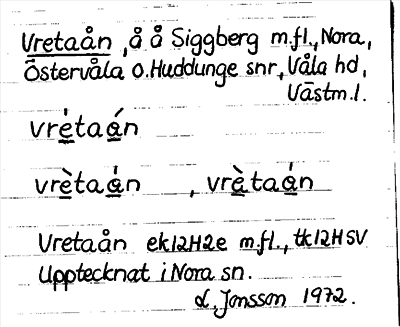 Vretaån , å å Siggberg m.fl., Nora,
Östervåla o. Huddunge snr, Våla hd,
Västm.l.
vrétaán
vrètaán , vràtaán
Vretaån ek12H2e m.fl., tk12HSV
Upptecknat i Nora sn.
L. Jonsson 1972.